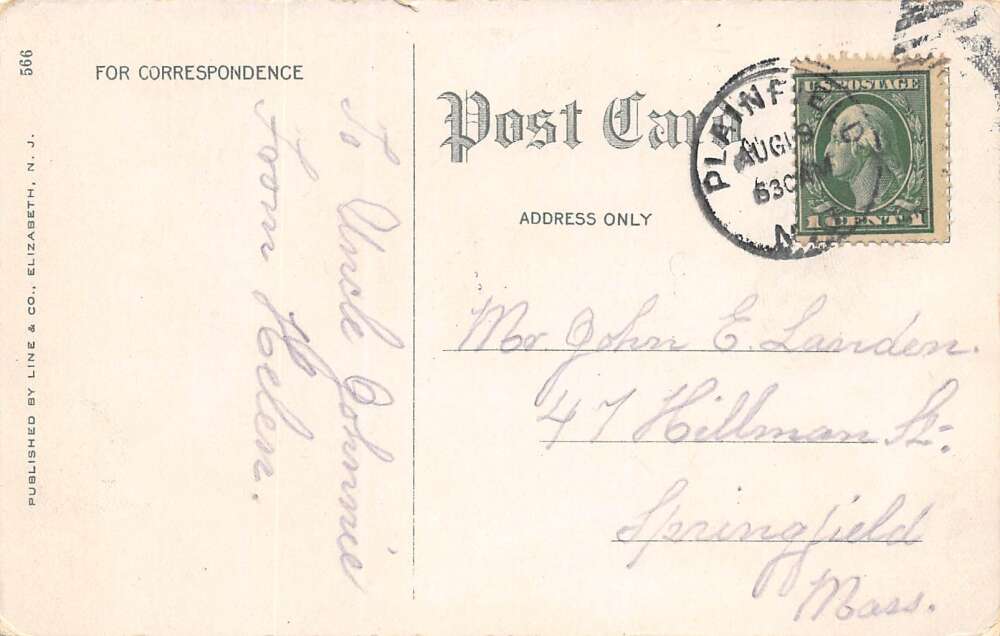 566
PUBLISHED BY LINE & CO., ELIZABETH, N. J.
FOR CORRESPONDENCE
To Uncle Johnnie
From Helen.
Post Card
ADDRESS ONLY
PLAINFIELD
AUG 18
630 AM
N.J.
U.S. POSTAGE
1 CENT 1
Mr John E. Landen.
47 Hillman St.
Springfield
Mass.